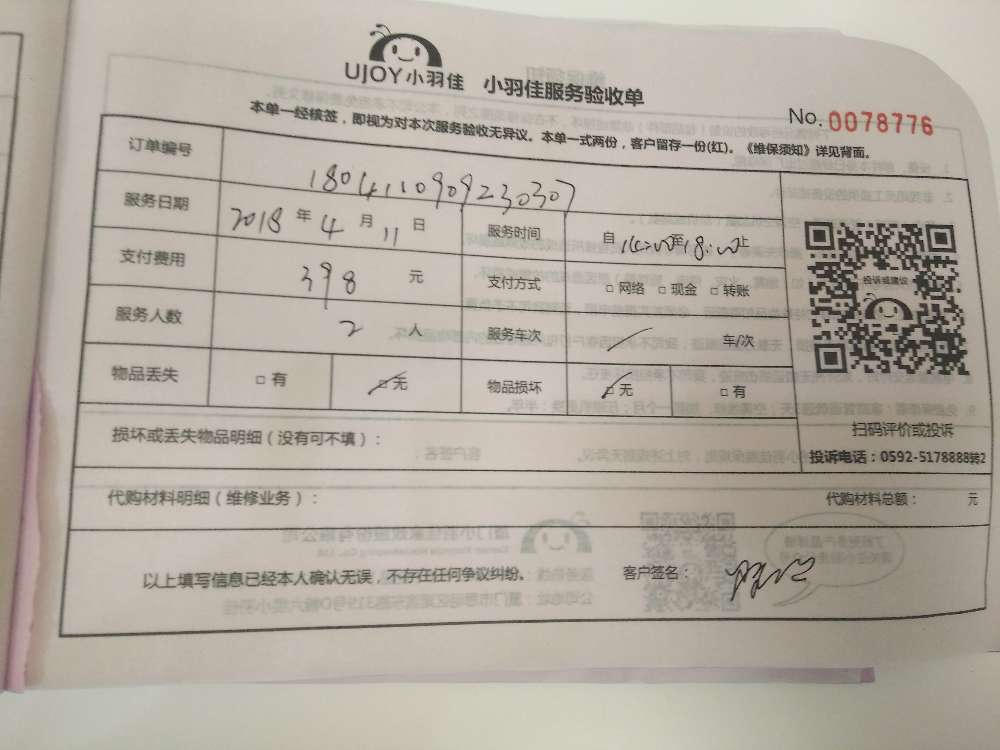 UJOY小羽佳 小羽佳服务验收单
No.0078776
本单一经核签，即视为对本次服务验收无异议。本单一式两份，客户留存一份(红)。《维保须知》详见背面。
订单编号 1804110909230307
服务日期 2018 年 4 月 11 日 服务时间 自 至18:00止
支付费用 398 元 支付方式 □ 网络 □ 现金 □ 转账
服务人数 2 人 服务车次 / 车/次
物品丢失 □ 有 □ 无 物品损坏 □ 无 □ 有
投诉或建议
扫码评价或投诉
投诉电话：0592-5178888转2
损坏或丢失物品明细（没有可不填）：
代购材料明细（维修业务）： 代购材料总额： 元
以上填写信息已经本人确认无误，不存在任何争议纠纷。 客户签名：